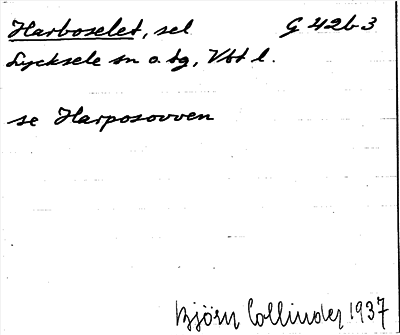 Harboselet, sel G 42b3
Lycksele sn o. tg, Vbtl.
se Harposovven
Björn Collinder 1937